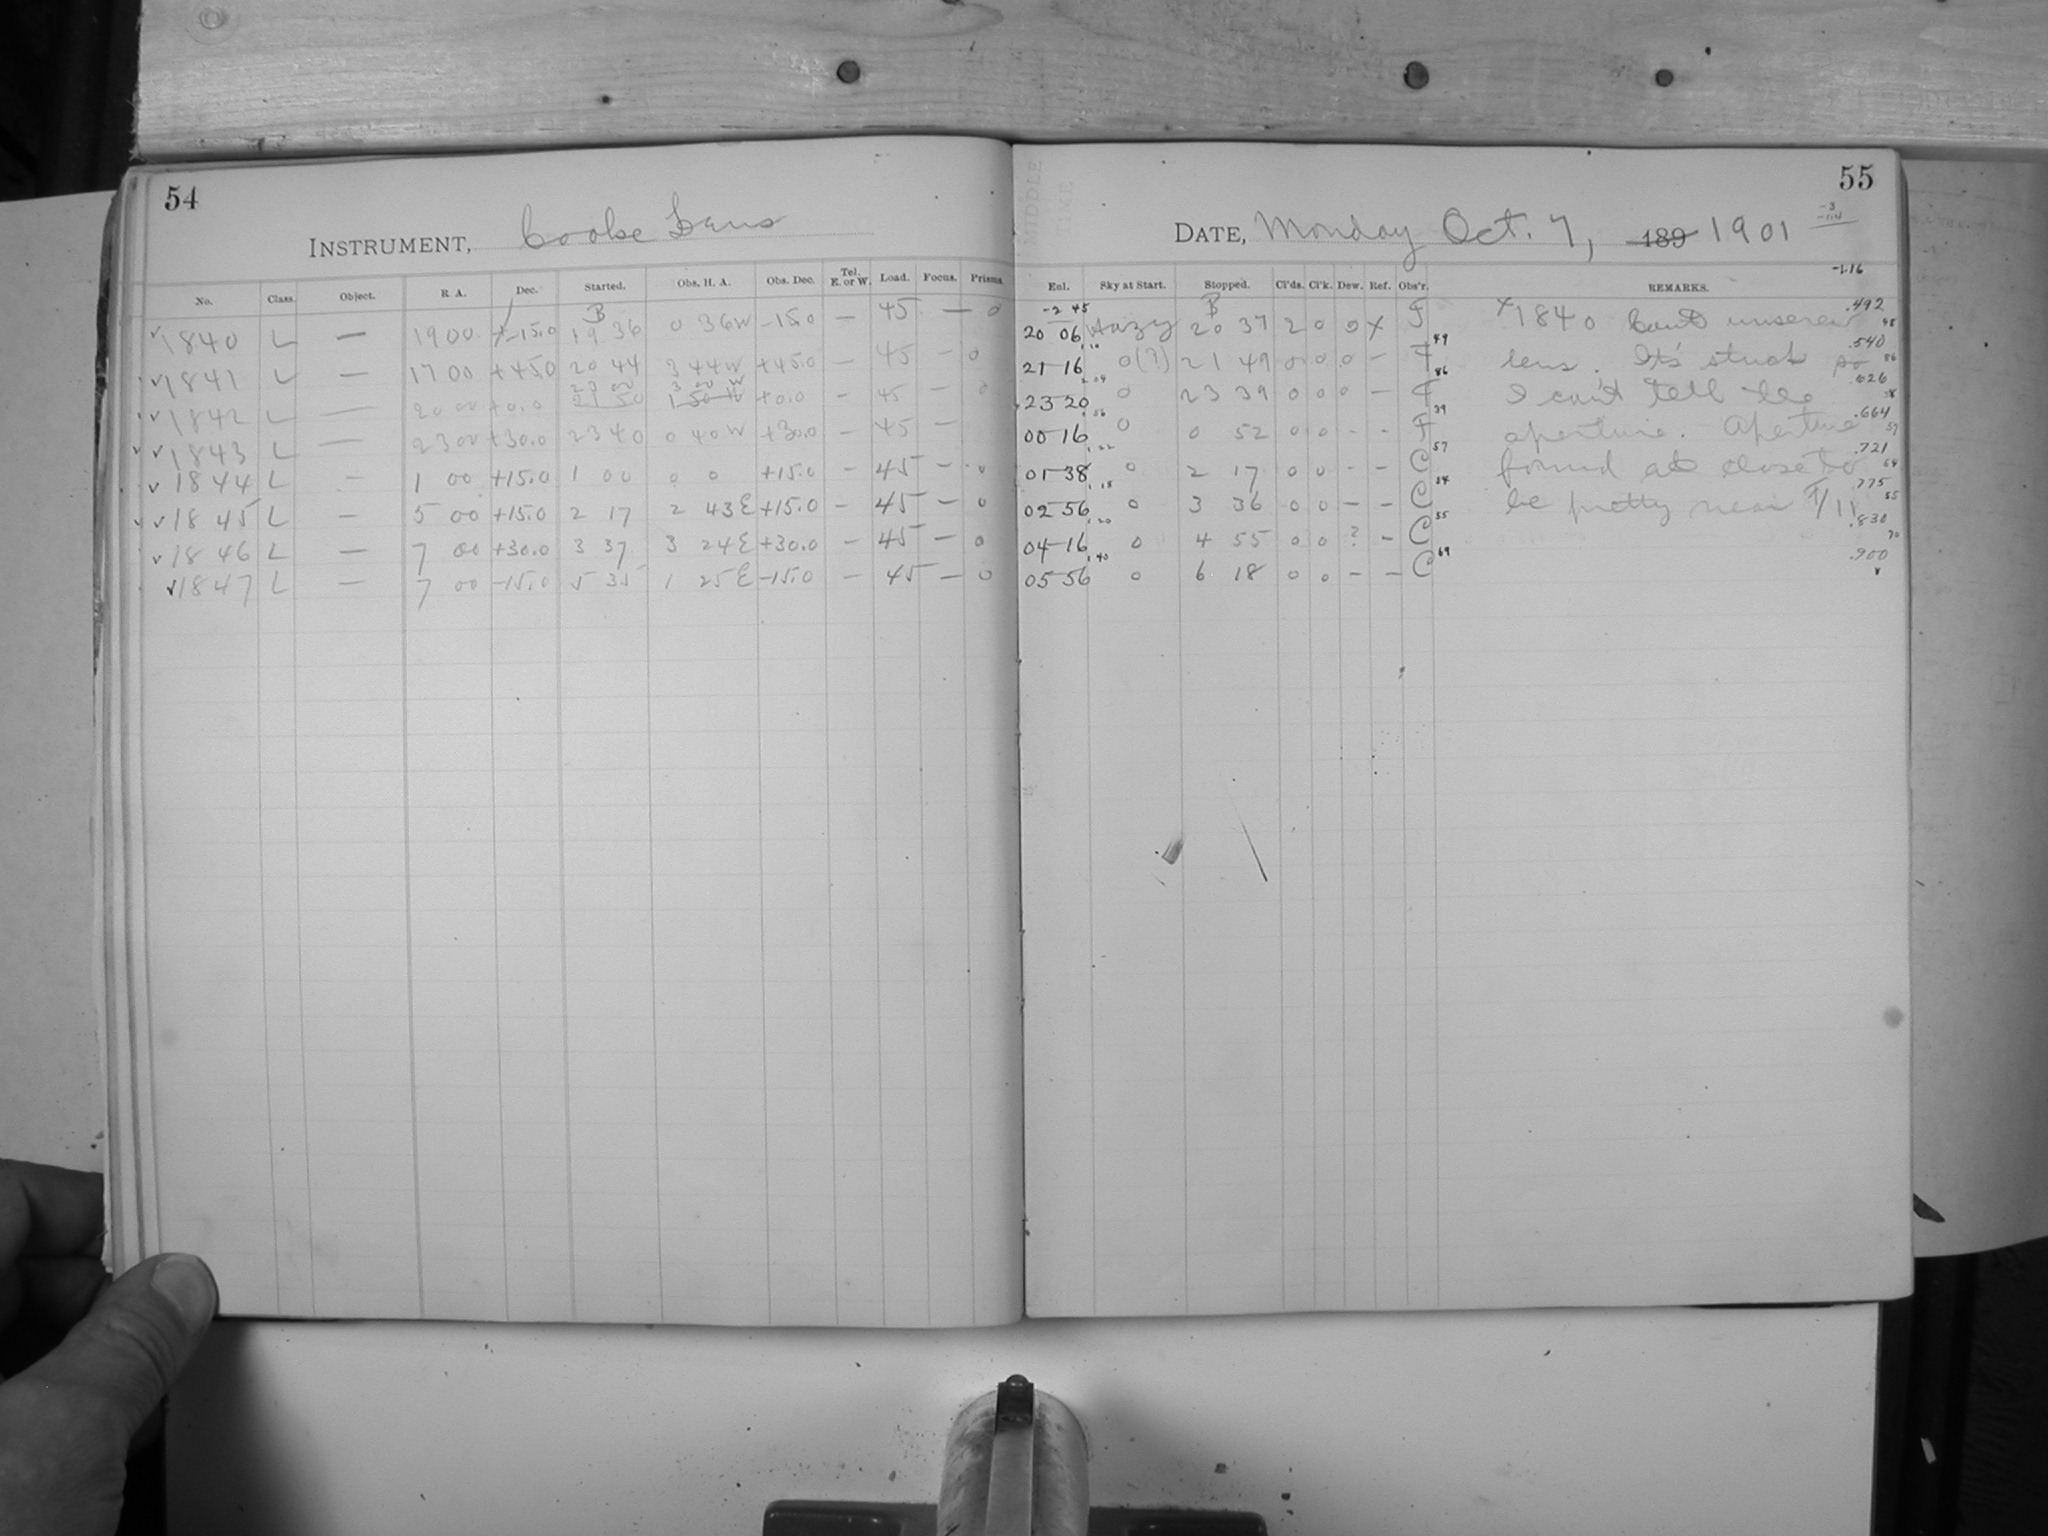 54
INSTRUMENT, Cooke Lens
No. Class. Object. R. A. Dec. Started. Obs. H. A. Obs. Dec. Tel. E. or W. Load. Focus. Prisms.
B
1840 L — 19 00 -15.0 19 36 0 36W -15.0 — 45 — 0
1841 L — 17 00 +45.0 20 44 3 44W +45.0 — 45 — 0
23 00 3 00 W
1842 L — 20 00 +0.0 21 50 1 50 W +0.0 — 45 — 0
1843 L — 23 00 +30.0 23 40 0 40W +30.0 — 45 —
1844 L — 1 00 +15.0 1 00 0 0 +15.0 — 45 — 0
1845 L — 5 00 +15.0 2 17 2 43E +15.0 — 45 — 0
1846 L — 7 00 +30.0 3 37 3 24E +30.0 — 45 — 0
1847 L — 7 00 -15.0 5 35 1 25E -15.0 — 45 — 0
55
DATE, Monday Oct. 7, 189 1901
-3
-1.16
Enl. Sky at Start. Stopped. Cl'ds. Cl'k. Dew. Ref. Obs'r. REMARKS.
-2 45 B .492
20 06 Hazy 20 37 2 0 0 X F X1840 Can't unscrew 48
.540
21 16 0(?) 21 49 0 0 0 — F lens. It's stuck so 86
.626
23 20 0 23 39 0 0 0 — F I can't tell the 38
.664
00 16 0 0 52 0 0 - - F aperture. Aperture 57
.721
01 38 0 2 17 0 0 - - C found at close to 54
.775
02 56 0 3 36 0 0 — — C be pretty near F/11 55
.830
04 16 0 4 55 0 0 ? — C 70
.900
05 56 0 6 18 0 0 — — C